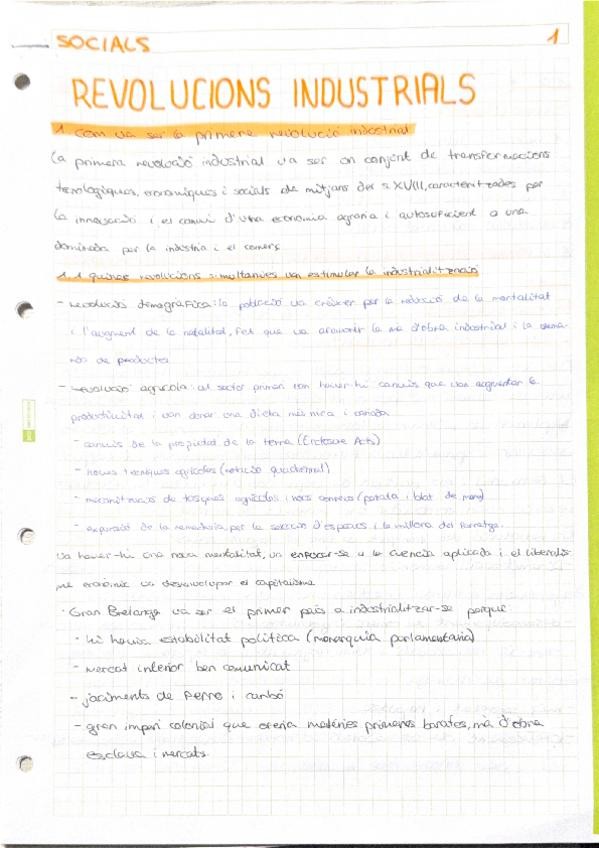 SOCIALS 1
REVOLUCIONS INDUSTRIALS
1. Com va ser la primera revolució industrial
La primera revolució industrial va ser un conjunt de transformacions
tecnològiques, econòmiques i socials de mitjans del s XVIII, caracteritzades per
la innovació i el canvi d'una economia agraria i autosuficient a una
dominada per la indústria i el comerç
1.1 quines revolucions simultànies van estimular la industrialització
- revolució demogràfica: la població va créixer per la reducció de la mortalitat
i l'augment de la natalitat, fet que va afavorir la mà d'obra industrial i la dema-
nda de productes
- revolució agrícola: al sector primari van haver-hi canvis que van augmentar la
productivitat i van donar una dieta més rica i variada
- canvis de la propietat de la terra (Enclosure Acts)
- noves tècniques agrícoles (rotació quadriennal)
- mecanització de tasques agrícoles i nous conreus (patata i blat de moro)
- expansió de la ramaderia, per la selecció d'espècies i la millora del farratge.
va haver-hi una nova mentalitat, va enfocar-se a la ciència aplicada i el liberalis-
me econòmic va desenvolupar el capitalisme
· Gran Bretanya va ser el primer país a industrialitzar-se perquè
- hi havia estabilitat política (monarquia parlamentària)
- mercat interior ben comunicat
- jaciments de ferro i carbó
- gran imperi colonial que oferia matèries primeres barates, mà d'obra
esclava i mercats.